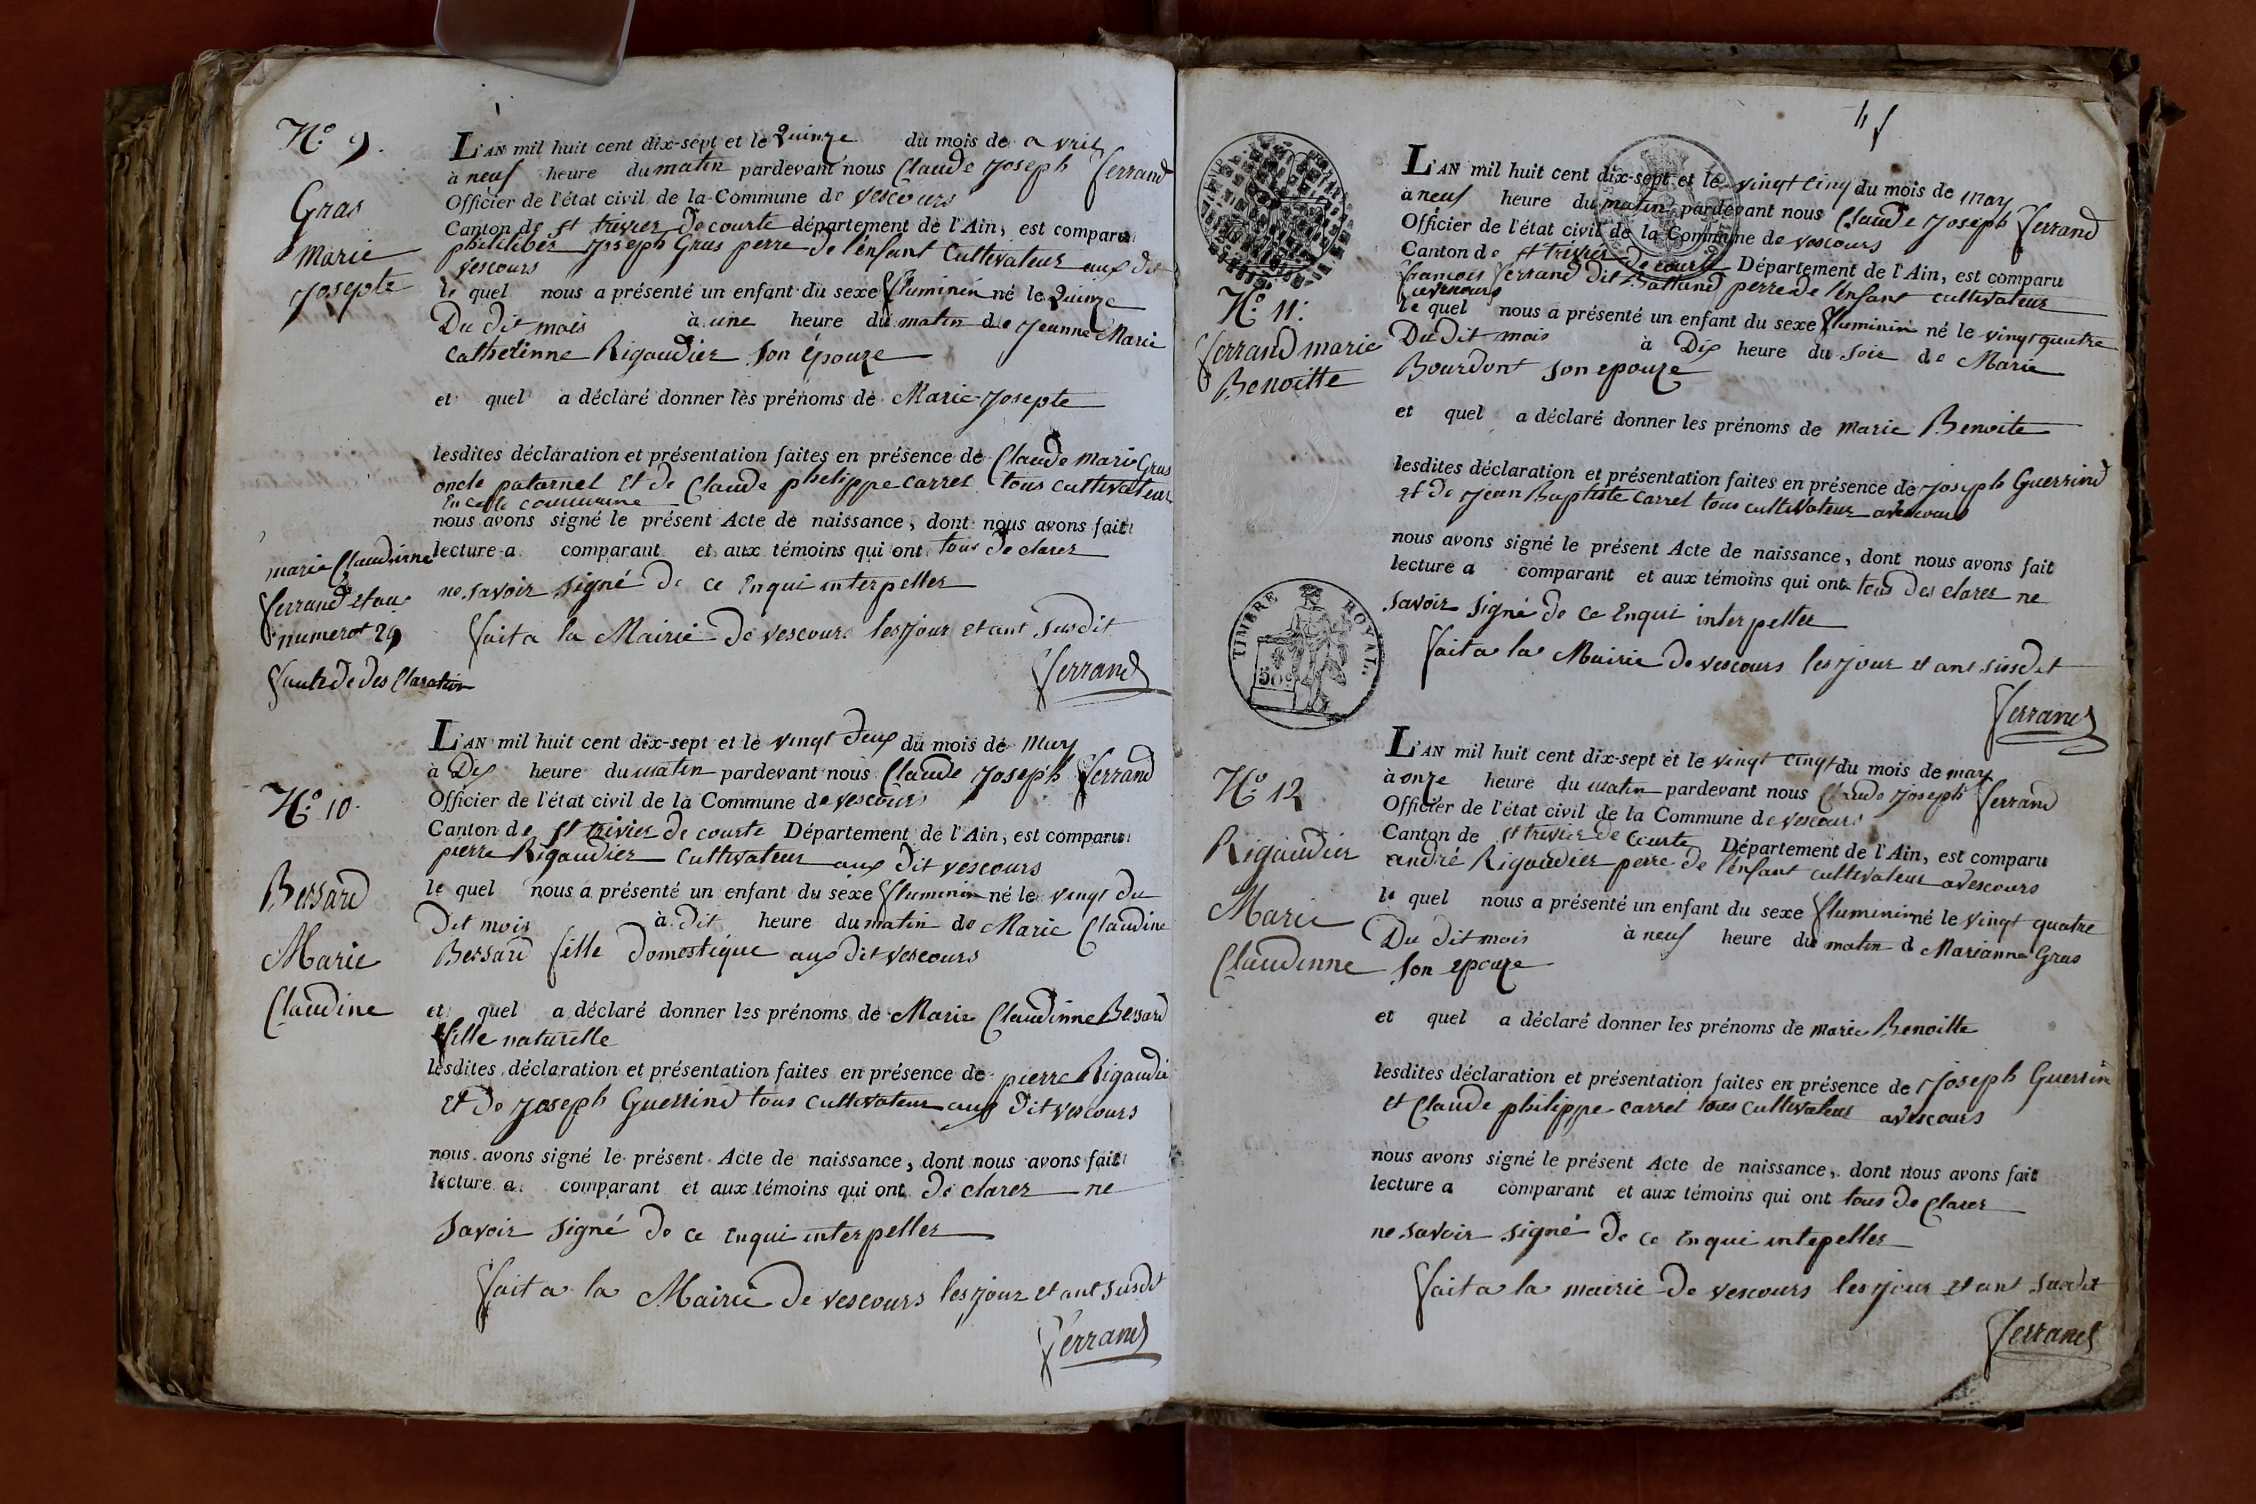 N.º 9.
Gras
marie
Josepte
L'AN mil huit cent dix-sept et le Quinze du mois de avril
à neuf heure du matin pardevant nous Claude Joseph ferrand
Officier de l'état civil de la Commune de vescours
Canton de st trivier de courte département de l'Ain, est comparu
philiber Joseph Gras perre de l'énfant Cultivateur aux dit
vescours
le quel nous a présenté un enfant du sexe fluminin né le Quinze
Du dit mois à une heure du matin de Jeanne Marie
Cathetinne Rigaudier son épouze
et quel a déclaré donner les prénoms de Marie Josepte
lesdites déclaration et présentation faites en présence de Claude marie Gras
oncle paternel et de Claude philippe carrel tous cultivateur
En cette commune
nous avons signé le présent Acte de naissance, dont nous avons fait
lecture a comparant et aux témoins qui ont tous de clarer
ne savoir signé de ce Enqui interpeller
fait a la Mairie de vescours les jour et ant susdit
ferrand
marie Claudinne
ferrand et au
numerot 29
faute de des Claration
N.º 10.
Bersard
Marie
Claudine
L'AN mil huit cent dix-sept et le vingt deux du mois de may
à Dix heure du matin pardevant nous Claude Joseph ferrand
Officier de l'état civil de la Commune de vescours
Canton de st trivier de courte Département de l'Ain, est comparu
pierre Rigaudier cultivateur aux dit vescours
le quel nous a présenté un enfant du sexe fluminin né le vingt du
Dit mois à dit heure du matin de Marie Claudine
Bersard fille domestique aux dit vescours
et quel a déclaré donner les prénoms de Marie Claudinne Bersard
fille naturelle
lesdites déclaration et présentation faites en présence de pierre Rigaudie
et de Joseph Guerrind tous cultivateur aux dit vescours
nous avons signé le présent Acte de naissance, dont nous avons fait
lecture a comparant et aux témoins qui ont de clarer ne
savoir signé de ce Enqui interpeller
fait a la Mairie de vescours les jour et ant susdit
ferrand
TIMBRE ROYAL
50
N.º 11.
ferrand marie
Benoitte
L'AN mil huit cent dix-sept et le vingt cinq du mois de may
à neuf heure du matin pardevant nous Claude Joseph ferrand
Officier de l'état civil de la Commune de vescours
Canton de st trivier de courte Département de l'Ain, est comparu
francois ferrand dit perre de l'énfant cultivateur
avescours
le quel nous a présenté un enfant du sexe fluminin né le vingt quatre
Du dit mois à Dix heure du soir de Marie
Bourdont son epouze
et quel a déclaré donner les prénoms de marie Benoite
lesdites déclaration et présentation faites en présence de Joseph Guerrind
et de Jean Baptiste carrel tous cultivateur avescours
nous avons signé le présent Acte de naissance, dont nous avons fait
lecture a comparant et aux témoins qui ont tous des clarer ne
savoir signé de ce Enqui interpeller
fait a la Mairie de vescours les jour et ant susdit
ferrand
N.º 12
Rigaudier
Marie
Claudinne
L'AN mil huit cent dix-sept et le vingt cinqt du mois de may
à onze heure du matin pardevant nous Claude Joseph ferrand
Officier de l'état civil de la Commune de vescours
Canton de st trivier de Courte Département de l'Ain, est comparu
andré Rigaudier perre de l'énfant cultivateur avescours
le quel nous a présenté un enfant du sexe fluminin né le vingt quatre
Du dit mois à neuf heure du matin d Marianne Gras
son epouze
et quel a déclaré donner les prénoms de marie Benoitte
lesdites déclaration et présentation faites en présence de Joseph Guerrin
et Claude philippe carrel tous cultivateur avescours
nous avons signé le présent Acte de naissance, dont nous avons fait
lecture a comparant et aux témoins qui ont tous de clarer
ne savoir signé de ce En qui intepeller
fait a la mairie de vescours les jour et ant susdit
ferrand